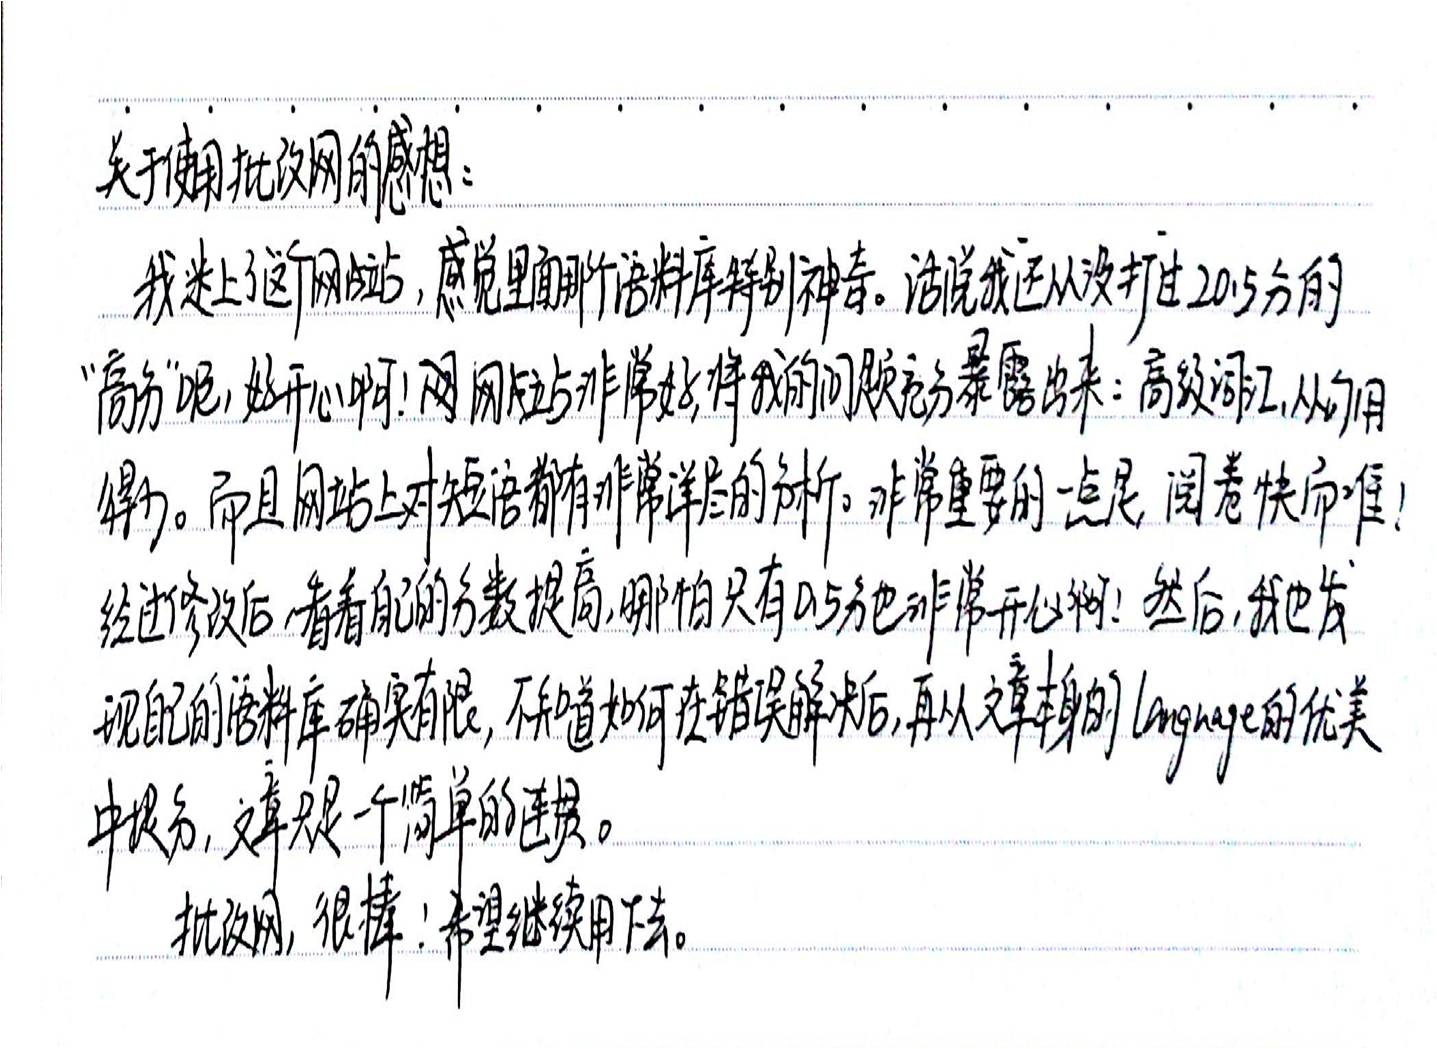 关于使用批改网的感想：
我迷上了这个网站，感觉里面那个语料库特别神奇。话说我还从没打过20.5分的
“高分”呢，好开心啊！网网站非常好，将我的问题充分暴露出来：高级词汇，从句用
得少。而且网站上对短语都有非常详尽的分析。非常重要的一点是，阅卷快而准！
经过修改后，看着自己的分数提高，哪怕只有0.5分也非常开心啊！然后，我也发
现自己的语料库确实有限，不知道如何在错误解决后，再从文章本身的language的优美
中提分，文章只是一个简单的连贯。
批改网，很棒！希望继续用下去。